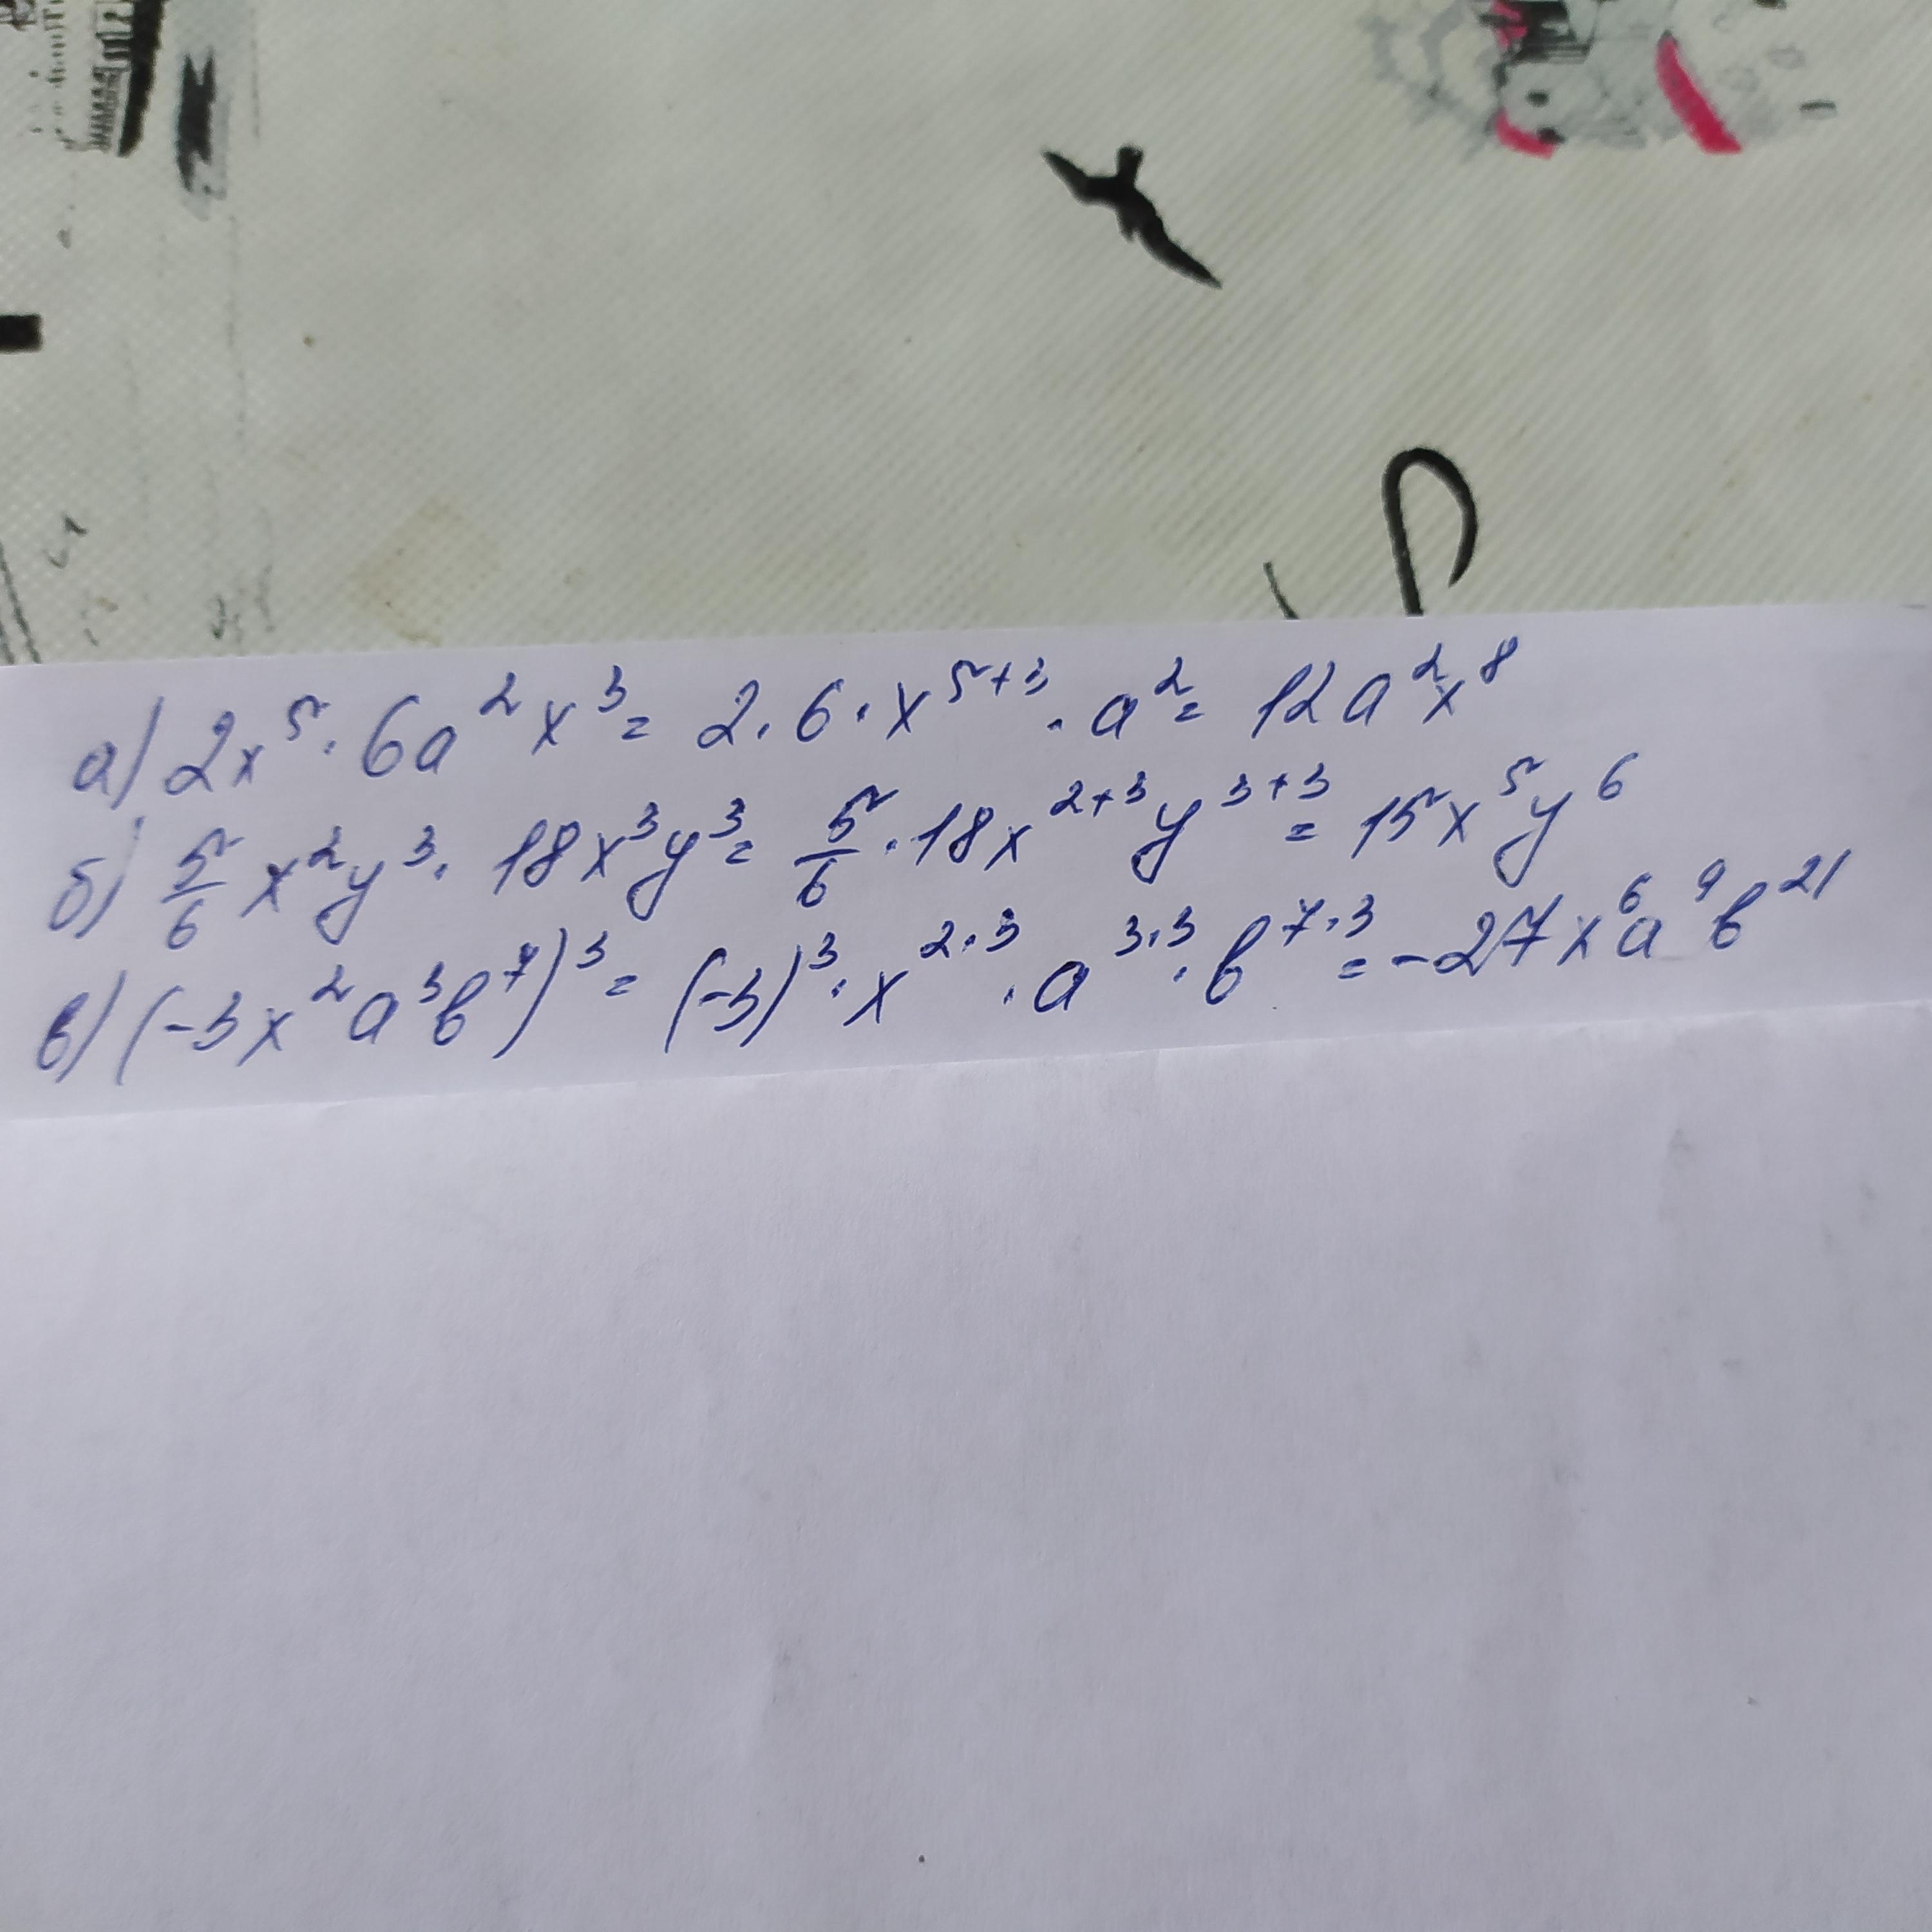 а) 2x⁵ · 6a²x³ = 2 · 6 · x⁵⁺³ · a² = 12a²x⁸
б) 5/6 x²y³ · 18x³y³ = 5/6 · 18x²⁺³y³⁺³ = 15x⁵y⁶
в) (-3x²a³b⁷)³ = (-3)³ · x²·³ · a³·³ · b⁷·³ = -27x⁶a⁹b²¹